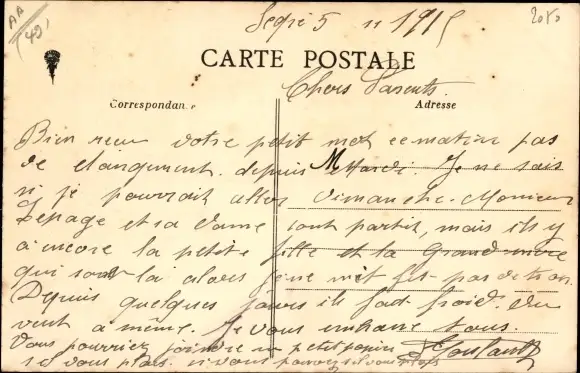 AA
(49)
Segré 5 11 1915
2080
CARTE POSTALE
Chers Parents
Correspondance
Adresse
Bien reçu votre petit mot ce matin pas
de changement. depuis Mardi. Je ne sais
si je pourrait aller Dimanche. Monsieur
Lepage et sa dame sont partit, mais ils y
a encore la petite fille et la Grand mère
qui sont là alors je ne mit fit pas de tron.
Depuis quelques jours il fait froid. du
vent a même. Je vous embrasse tous.
Vous pourriez joindre un petit papier
s'il vous plais. si vous pouvez s'il vous plais